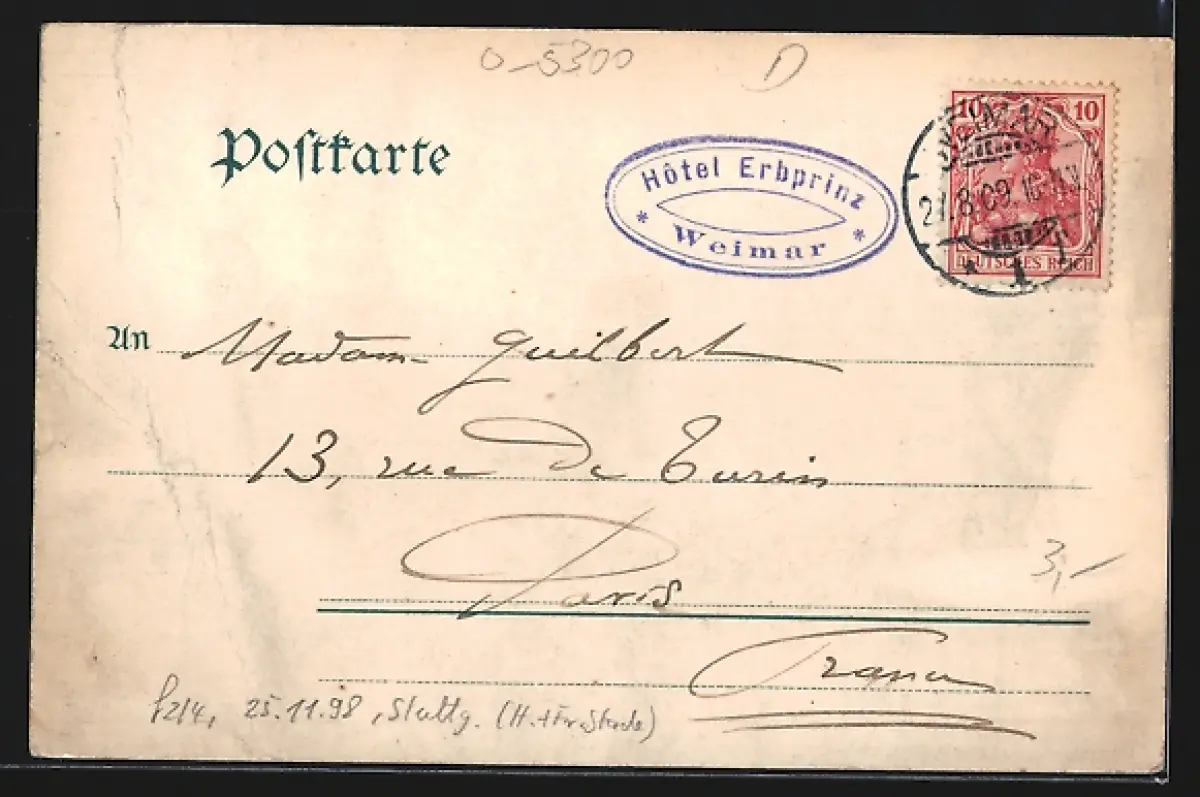 0-5300 D
Postkarte
Hôtel Erbprinz
* Weimar *
10 10
DEUTSCHES REICH
WEIMAR
27.8.09. 10-11V.
* 1
An Madame Guilbert
13, rue De Turin
Paris
France
3,-
25.11.98, Stuttg.